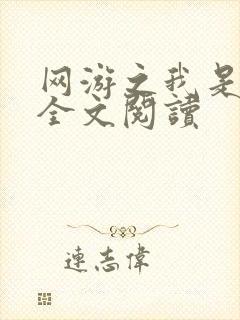 网游之我是
全文閱讀
連志偉